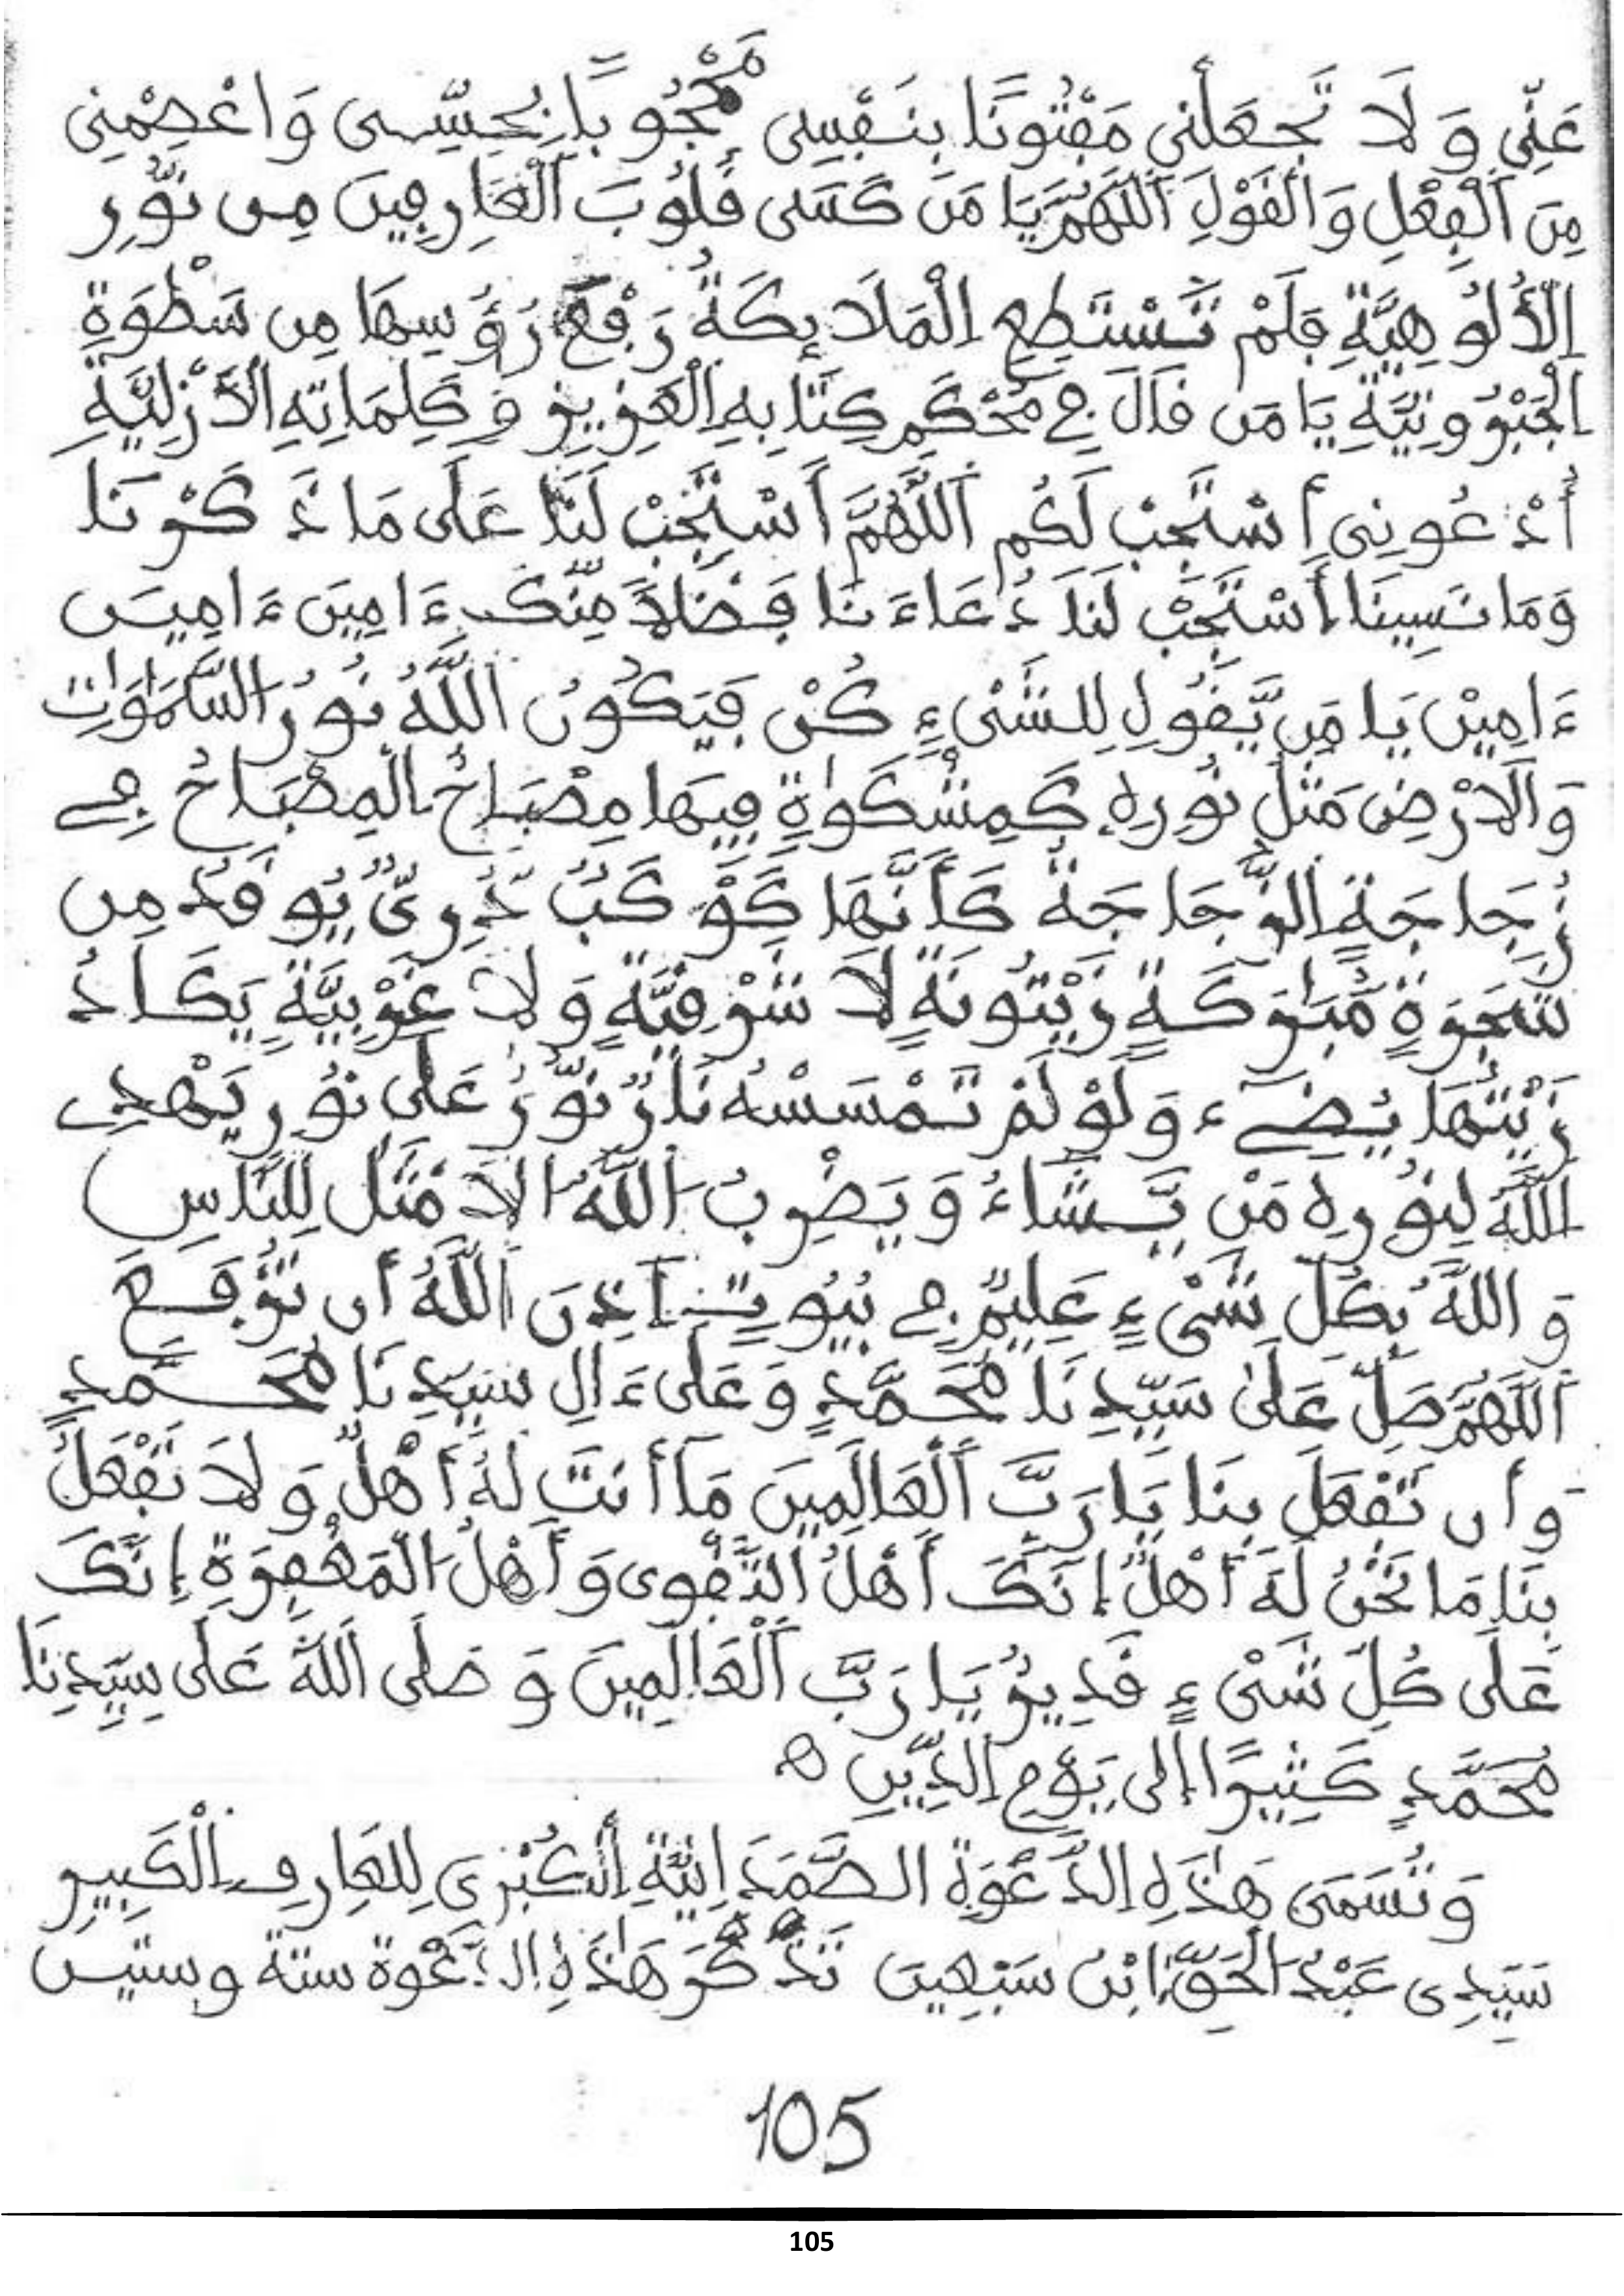 عَنِّي وَلَا تَجْعَلْنِي مَفْتُونًا بِنَفْسِي مَحْجُوبًا بِحِسِّي وَاعْصِمْنِي
مِنَ ٱلْفِعْلِ وَٱلْقَوْلِ ٱللَّهُمَّ يَا مَنْ كَسَى قُلُوبَ ٱلْعَارِفِينَ مِن نُّورِ
اِلْأُلُوهِيَّةِ فَلَمْ تَسْتَطِعِ اِلْمَلَائِكَةُ رَفْعَ رُؤُسِهَا مِن سَطْوَةِ
اِلْجَبْرُونِيَّةِ يَا مَن قَالَ فِي مُحْكَمِ كِتَابِهِ اِلْعَزِيزِ وَكَلِمَاتِهِ اِلْأَزَلِيَّةِ
أُدْعُونِي أَسْتَجِبْ لَكُم ٱللَّهُمَّ ٱسْتَجِبْ لَنَا عَلَى مَا ذَكَرْنَا
وَمَا نَسِينَا أَسْتَجِبْ لَنَا دُعَاءَنَا فَضْلًا مِّنْكَ ءَامِينَ ءَامِيـن
ءَامِينْ يَا مَن يَّقُولِ لِلشَّيْءِ كُنْ فَيَكُونُ اَللَّهُ نُورُ السَّمَٰوَٰتِ
وَٱلَارْضِ مَثَلُ نُورِهِ كَمِشْكَوٰةٍ فِيهَا مِصْبَاحٌ اَلْمِصْبَاحُ فِي
زُجَاجَةٍ اِلزُّجَاجَةُ كَأَنَّهَا كَوْكَبٌ دُرِّيٌّ يُوقَدُ مِن
شَجَرَةٍ مُّبَٰرَكَةٍ زَيْتُونَةٍ لَّا شَرْقِيَّةٍ وَلَا غَرْبِيَّةٍ يَكَادُ
زَيْتُهَا يُضِيٓءُ وَلَوْ لَمْ تَمْسَسْهُ نَارٌ نُّورٌ عَلَى نُورٍ يَهْدِي
اَللَّهُ لِنُورِهِ مَنْ يَّشَاءُ وَيَضْرِبُ اَللَّهُ الَامْثَالَ لِلنَّاسِ
وَاللَّهُ بِكُلِّ شَيْءٍ عَلِيمٌ فِي بُيُوتٍ اَذِنَ اَللَّهُ أَن تُرْفَعَ
اَللَّهُمَّ صَلِّ عَلَىٰ سَيِّدِنَا مُحَمَّدٍ وَعَلَى ءَالِ سَيِّدِنَا مُحَـمَّدٍ
وَأَن تَفْعَلَ بِنَا يَا رَبَّ ٱلْعَالَمِينَ مَآ أَنتَ لَهُ أَهْلٌ وَلَا تَفْعَلْ
بِنَا مَا نَحْنُ لَهُ أَهْلٌ إِنَّكَ أَهْلُ التَّقْوَى وَأَهْلُ الْمَغْفِرَةِ إِنَّكَ
عَلَى كُلِّ شَيْءٍ قَدِيرٌ يَا رَبَّ ٱلْعَالَمِينَ وَصَلَّى اَللَّهُ عَلَى سَيِّدِنَا
مُحَمَّدٍ كَثِيرًا إِلَى يَوْمِ اِلدِّينِ ه
وَتُسَمَى هَٰذَهِ اِلدَّعْوَةِ الصَّمَدَانِيَّةِ اَلْكُبْرَى لِلعَارِفِ اِلْكَبِيرِ
سَيِّدِي عَبْدُ الْحَقِّ اِبْن سَبْعِين تَذْكُرَ هَٰذَهِ اِلدَّعْوَة ستة وستيـن
105
105